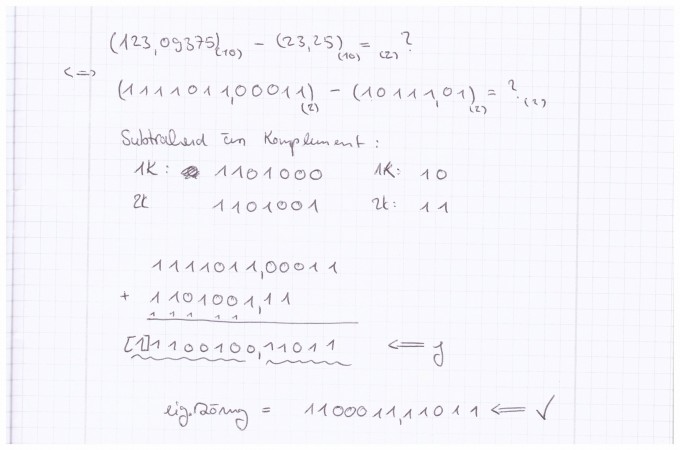 (123,09375)(10) – (23,25)(10) = (2) ?
<=>
(1111011,00011)(2) – (10111,01)(2) = ?(2)
Subtrahend im Komplement :
1K : 1101000 1K: 10
2K 1101001 2K: 11
1111011,00011
+ 1101001,11
1 1 1 1 1
[1]1100100,11011 <=
eig. Lösung = 1100011,11011 <= ✓